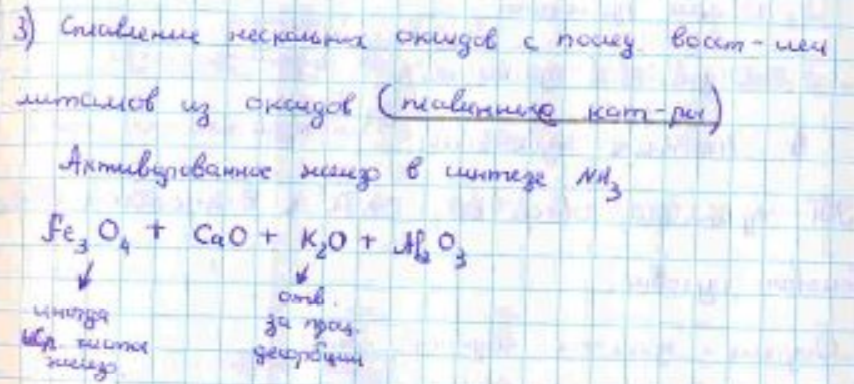 3) Сплавление нескольких оксидов с послед. восст-ием
металлов из оксидов (плавленные кат-ры)
Активированное железо в синтезе NH3
Fe3O4 + CaO + K2O + Al2O3
иногда отв.
чистое за проц.
железо десорбции